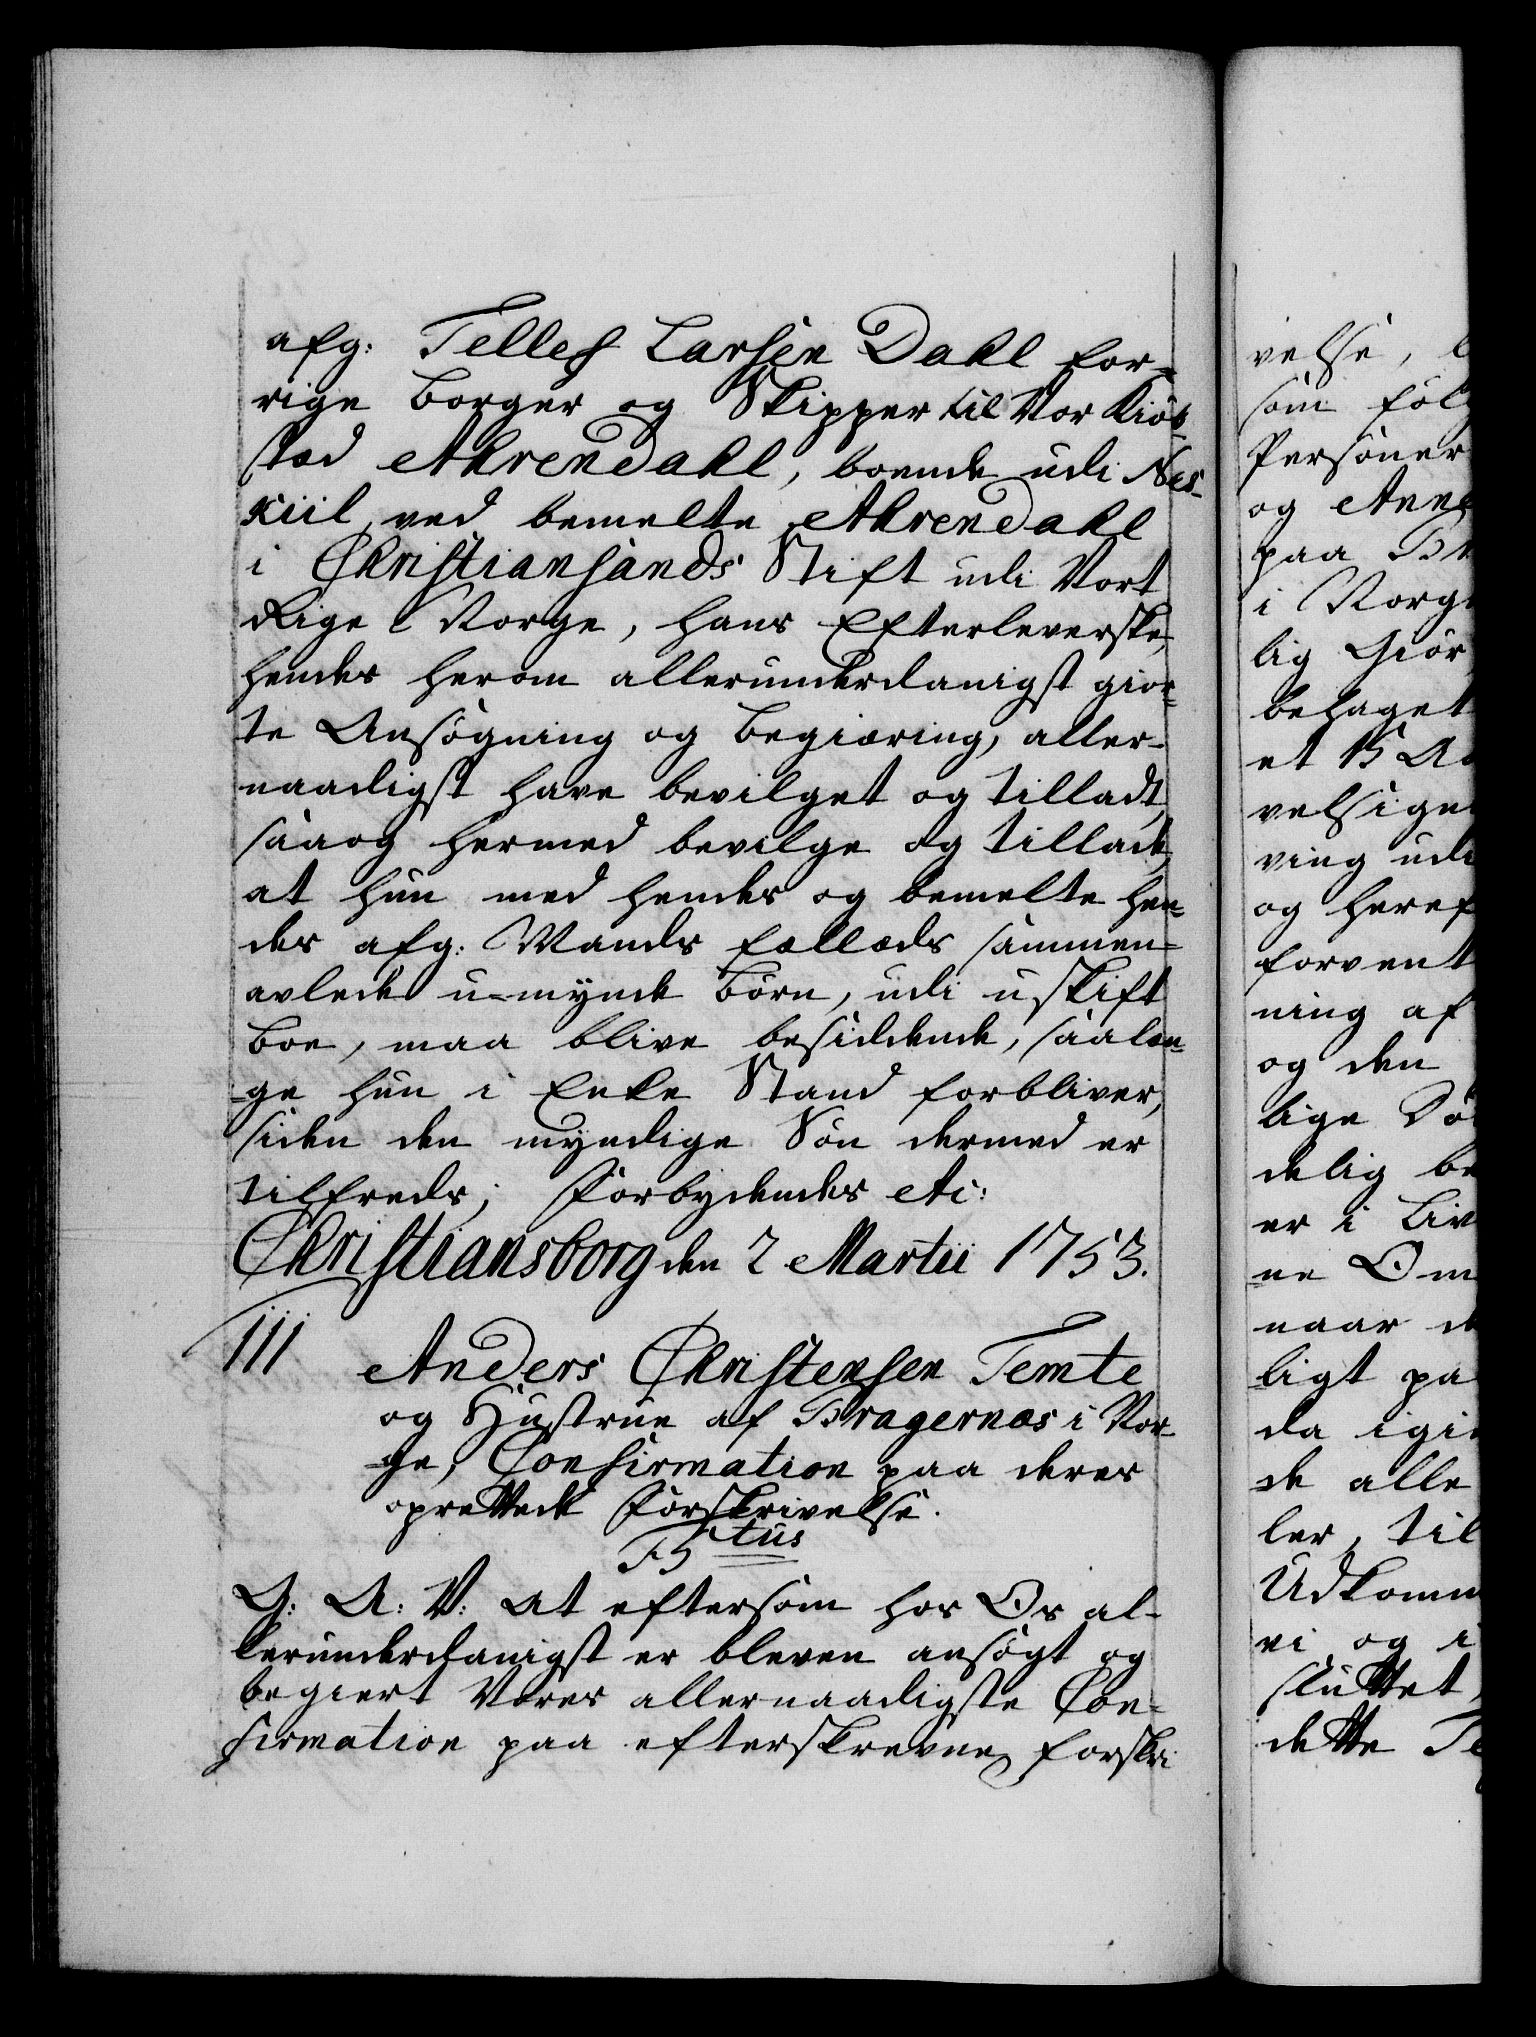 afg: Tellef Larsen Dahl for-
rige Borger og Skipper til Vor Kiøb-
stæd Ahrendahl, boende udi Nes-
kiil ved bemelte Ahrendahl
i Christiansands Stift udi Vort
Rige Norge, hans Efterleverske,
hendes herom allerunderdanigst gior-
te Ansøgning og begiæring, aller-
naadigst have bevilget og tilladt,
saa og hermed bevilge og tillade,
at hun med hendes og bemelte hen-
des afg: Mands fælleds sammen-
avlede u-mynde Børn, udi uskift
Boe, maa blive besiddende, saalæn-
-ge hun i Enke Stand forbliver,
siden den myndige Søn dermed er
tilfreds; Forbydendes etc:
Christiansborg den 2 Martii 1753.
111 Anders Christensen Temte
og Hustrue af Bragernæs i Nor-
-ge, Confirmation paa deres
oprettede Forskrivelse.
Btus
G: A: V: at eftersom hos Os al-
lerunderdanigst er bleven ansøgt og
begiert Vores allernaadigste Con-
firmation paa efterskrevne forskri-
velse,
som føl
Personer
og Anne
paa Br
i Norge
lig Giør
behaget
et
velsigne
ving udi
og heref
forvent
ning af
og den
lige Dø
delig be
er i Liv
ne Om
naar de
ligt pa
da igi
de alle
ler, til
Udkomm
vi og i
sluttet,
dette Te